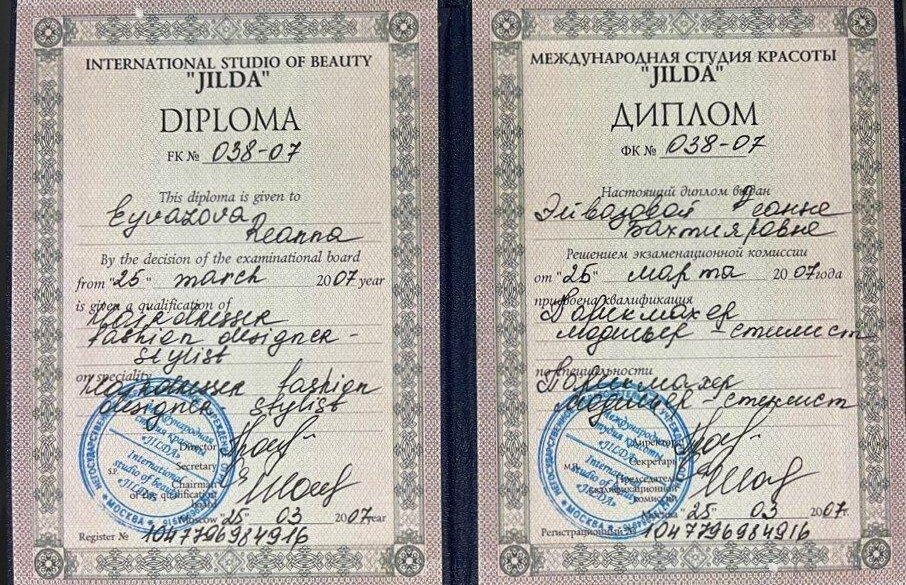 INTERNATIONAL STUDIO OF BEAUTY
"JILDA"
DIPLOMA
FK № 038-07
This diploma is given to
Eyvazova
Reanna
By the decision of the examinational board
from "25" march 2007 year
is given a qualification of
Hairdresser
fashion designer-
stylist
on speciality
Hairdresser fashion
designer stylist
Director
Secretary
S.P.
Chairman
of the qualification
board
Moscow "25" 03 2007 year
Register № 1047796984916
МЕЖДУНАРОДНАЯ СТУДИЯ КРАСОТЫ
"JILDA"
ДИПЛОМ
ФК № 038-07
Настоящий диплом выдан
Эйвазовой Реанне
Бахтияровне
Решением экзаменационной комиссии
от "25" марта 2007 года
присвоена квалификация
Парикмахер
модельер-стилист
по специальности
Парикмахер
модельер-стилист
Директор
Секретарь
М.П.
Председатель
квалификационной
комиссии
"25" 03 2007г.
Регистрационный № 1047796984916
Международная
студия красоты
«JILDA»
International
studio of beauty
«JILDA»
МОСКВА